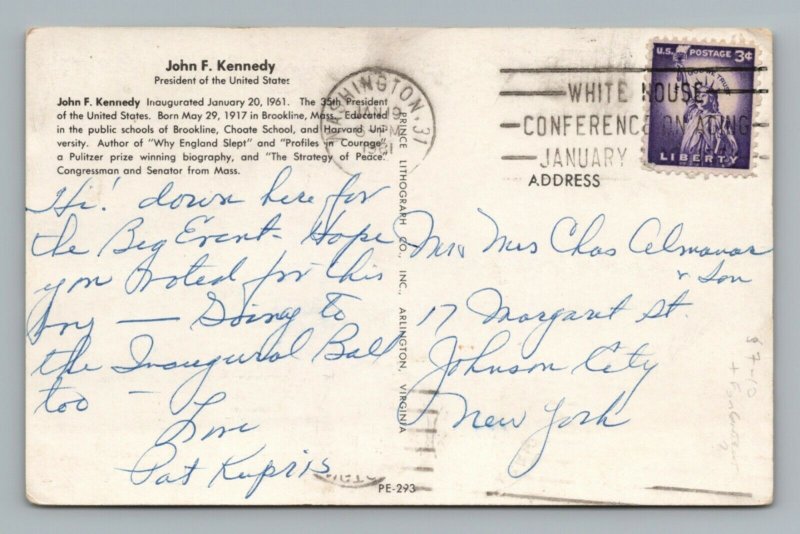 John F. Kennedy
President of the United States
John F. Kennedy Inaugurated January 20, 1961. The 35th President
of the United States. Born May 29, 1917 in Brookline, Mass. Educated
in the public schools of Brookline, Choate School, and Harvard Uni-
versity. Author of "Why England Slept" and "Profiles in Courage"
a Pulitzer prize winning biography, and "The Strategy of Peace.
Congressman and Senator from Mass.
Hi! down here for
the Big Event - Hope
you voted for this
boy — Going to
the Inaugural Ball
too —
Love
Pat Kupris
PE-293
PRINCE LITHOGRAPH CO., INC., ARLINGTON, VIRGINIA
WASHINGTON, 31
JAN
PM
1961
WHITE HOUSE
CONFERENCE ON AGING
JANUARY
U.S. POSTAGE 3¢
IN GOD WE TRUST
LIBERTY
ADDRESS
Mr + Mrs Chas
+ Son
17 Margaret St.
Johnson City
New York
$7-10